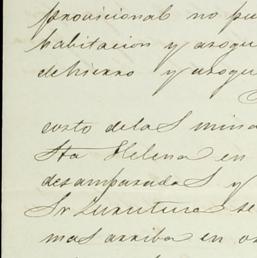 provicional no pu
habitacion y asogue
de hierro y asogue
costo de las mina
Sta Helena en
desamparadas y
Sr Zurutuza se
mas arriba en